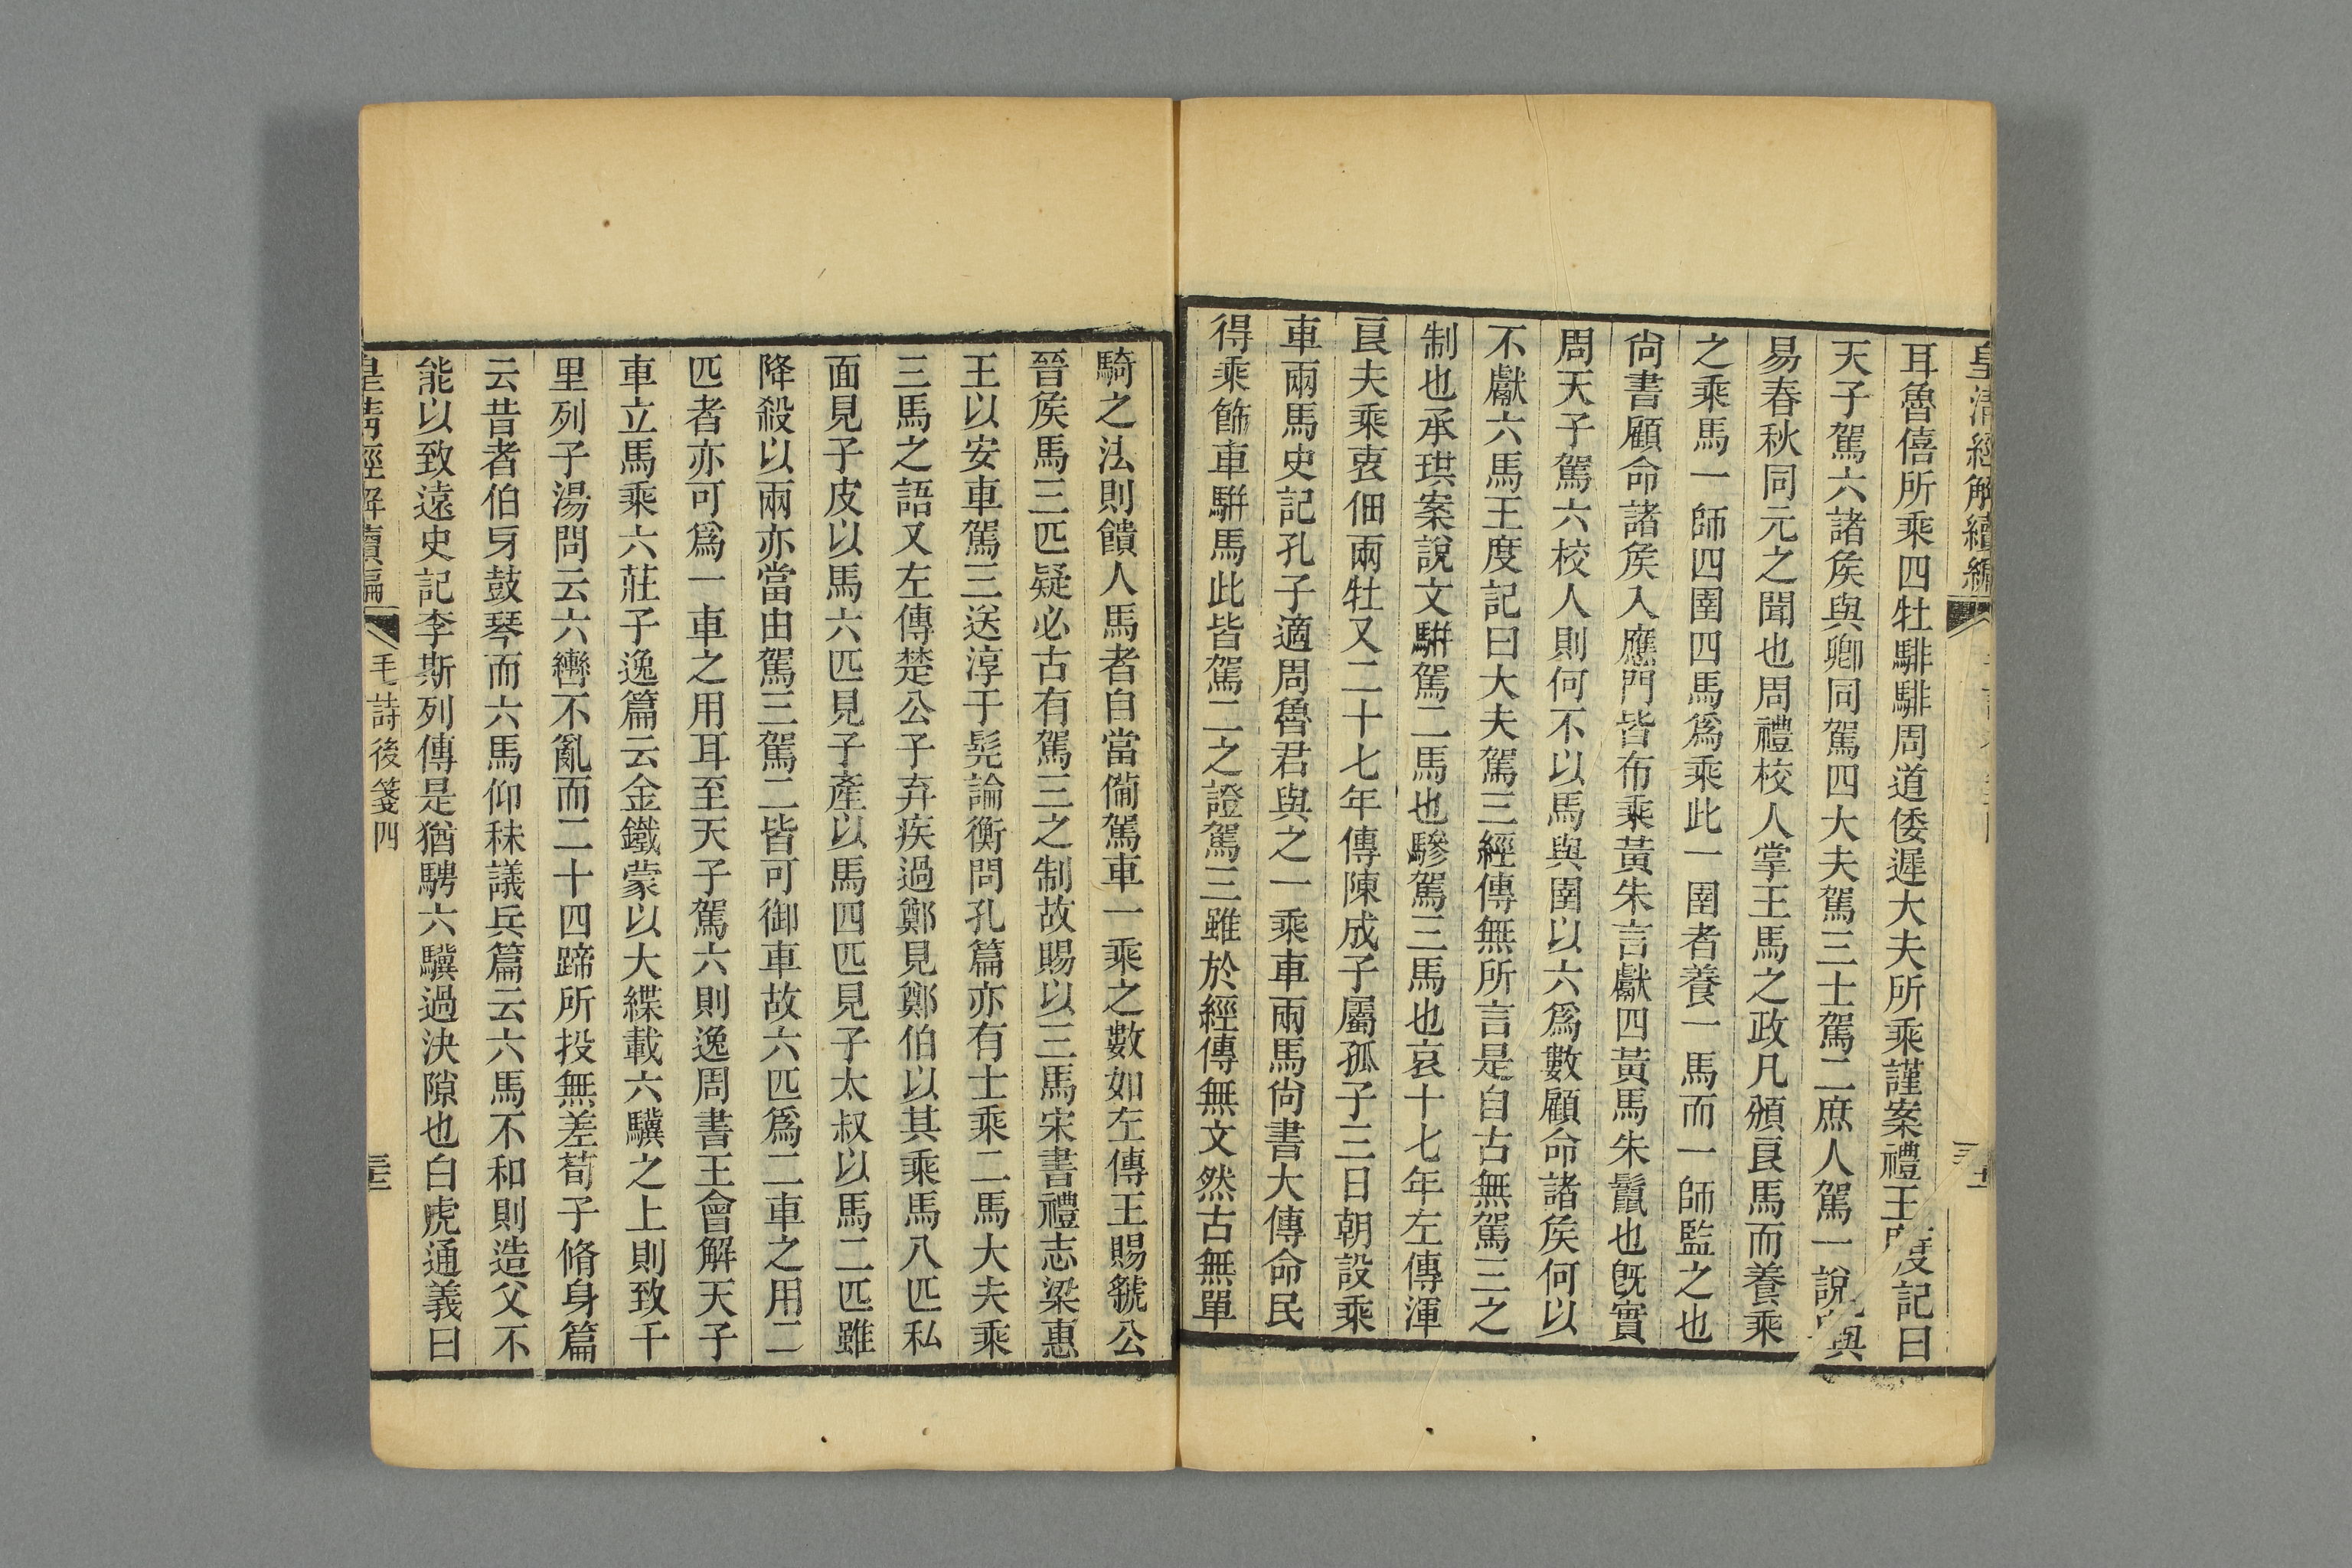 皇清經解續編
耳魯僖所乘四牡騑騑周道倭遲大夫所乘謹案禮王度記曰
天子駕六諸矦與卿同駕四大夫駕三士駕二庶人駕一說與
易春秋同元之聞也周禮校人掌王馬之政凡頒良馬而養乘
之乘馬一師四圉四馬爲乘此一圉者養一馬而一師監之也
尙書顧命諸矦入應門皆布乘黃朱言獻四黃馬朱鬣也旣實
周天子駕六校人則何不以馬與圉以六爲數顧命諸矦何以
不獻六馬王度記曰大夫駕三經傳無所言是自古無駕三之
制也承珙案說文騈駕二馬也驂駕三馬也哀十七年左傳渾
良夫乘衷佃兩牡又二十七年傳陳成子屬孤子三日朝設乘
車兩馬史記孔子適周魯君與之一乘車兩馬尙書大傳命民
得乘飾車騈馬此皆駕二之證駕三雖於經傳無文然古無單
騎之法則饋人馬者自當僃駕車一乘之數如左傳王賜虢公
晉矦馬三匹疑必古有駕三之制故賜以三馬宋書禮志梁惠
王以安車駕三送淳于髡論衡問孔篇亦有士乘二馬大夫乘
三馬之語又左傳楚公子弃疾過鄭見鄭伯以其乘馬八匹私
面見子皮以馬六匹見子產以馬四匹見子太叔以馬二匹雖
降殺以兩亦當由駕三駕二皆可御車故六匹爲二車之用二
匹者亦可爲一車之用耳至天子駕六則逸周書王會解天子
車立馬乘六莊子逸篇云金鐵蒙以大緤載六驥之上則致千
里列子湯問云六轡不亂而二十四蹄所投無差荀子脩身篇
云昔者伯牙鼓琴而六馬仰秣議兵篇云六馬不和則造父不
能以致遠史記李斯列傳是猶騁六驥過決隙也白虎通義曰
皇清經解續編
毛詩後箋四